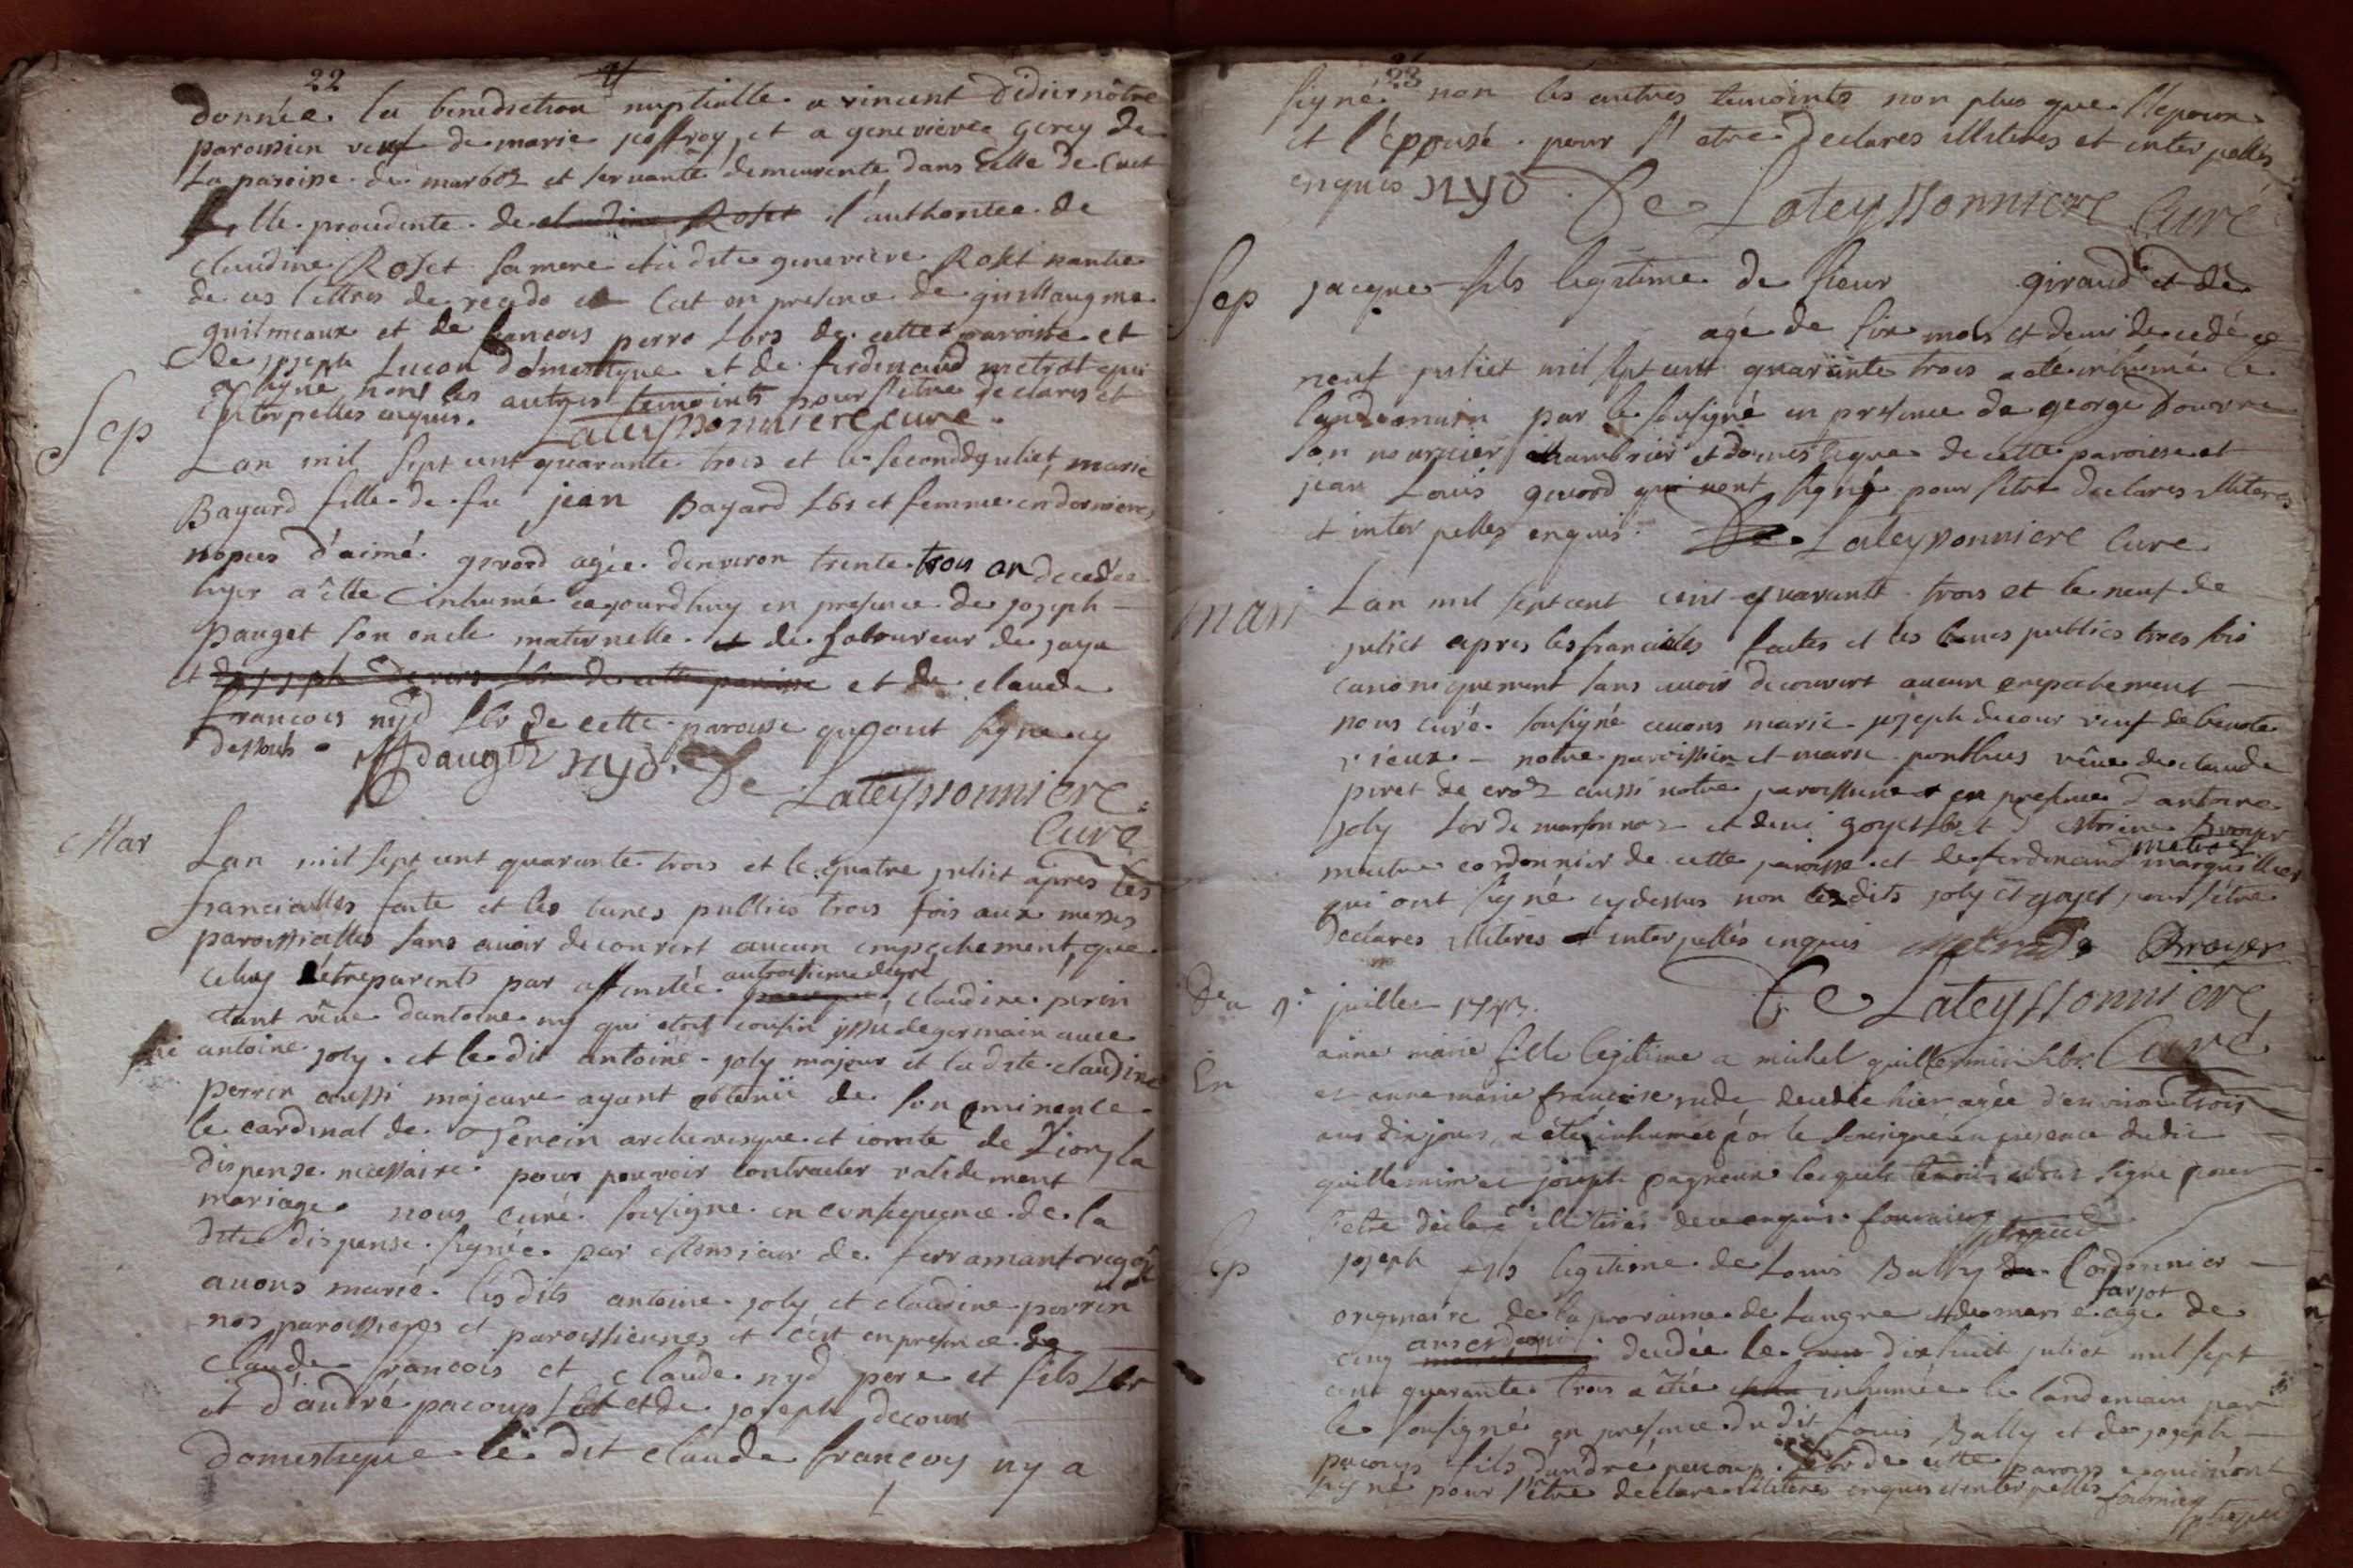 22
donnée la benediction nuptialle a vincent Didier nôtre
paroissien veuf de marie joffroy, et a genevievre gerey de
La paroisse de marboz et servante demeurente dans celle de Cuet
Elle procedente de claudine Roset l'authoritée de
claudine Roset sa mere et la dite genevieve Roset
de ces lettres de recedo et C'at en presence de guillaume
guilmeaux et de francois perro Lbrs de cette paroisse et
de joseph Lucon domestique et de ferdinand metrat qui
a signé non les autres temoints pour s'etre declares et
Interpelles enquis. Lateyssonniere curé
Sep
Lan mil sept cent quarante trois et le second juliet, marie
Bayard fille de fu jean Bayard Lbr et femme en dernieres
nopces d'aimé gevord agée denviron trente trois an decedée
hyer a êtée inhumé cejourdhuy en presence de joseph
pauget son oncle maternelle et de Laboureur de jaya
et joseph de cette paroisse et de claude
francois nyd Lbr de cette paroisse qui ont signe cy
dessous pauget nyd De Lateyssonniere
Curé
Mar
Lan mil sept cent quarante trois et le quatre juliet apres les
francialles faite et les bancs publiés trois fois aux messes
paroissialles sans avoir decouvert aucun empechement, que
celuy d'étreparents par affinitée au troisieme degré, claudine perin
etant vêue dantoine ny qui etoit cousin issu degermain avec
antoine joly. et le dit antoine joly majeur et la dite claudine
perrin aussi majeure ayant obtenü de son eminence
le cardinal de Tencin archevesque et comte de Lion, la
dispense necessaire pour pouvoir contracter validement
mariage nous curé sousigne en consequence de la
dite dispense signée par Monsieur de
avons marié lesdits antoine joly et claudine perrin
nos paroissiens et paroissiennes et c'est en presence de
Claude francois et claude nyd pere et fils Lbr
et d'andré pacoup Lbr et de joseph decour
domestique le dit claude francoy ny a
23
signé non les autres temoints non plus que l'epoux
et l'epousé pour s'etre declares illiteres et interpellés
enquis nyd De Lateyssonniere Curé
Sep
jacque fils legitime de sieur giraud et de
agé de six mois et demi decedé ce
neuf juliet mil sept cent quarante trois a été inhumé le
landemain par le sousigné en presence de george Douvre
son nourricier et domestique de cette paroisse et
jean Louis gevord qui nont signé pour s'etre declares illiteres
et interpelles enquis. De Lateyssonniere Cure
mari
Lan mil sept cent cent quarante trois et le neuf de
juliet apres les francialles faites et les bancs publies trois fois
canoniquement sans avoir decouvert aucun empechement
nous curé sousigné avons marié joseph decour veuf de benoite
vieux notre paroissien et marie ponthus vêue de claude
piret de croz aussi notre paroissiene et en presence d'antoine
joly Lbr de marsonnaz et deni goyet Lbr et Broyer
maitre cordonnier de cette paroisse et de ferdinand metrat marguillier
qui ont signé cy dessus non lesdits joly et goyet pour s'être
declares illiteres et interpellés enquis metrat Broyer
De Lateyssonniere
Curé
9e juillet 1743.
En
anne marie fille legitime a michel guillermin Lbr
et anne marie francoise rude decedée hier agée d'environ trois
ans dix jours, a été inhumée par le sousigné en presence dudit
guillermin et joseph pagneux lesquels temoins nont signe pour
s'etre declaré illiteres de ce enquis fournier
Sep
joseph fils legitime de Louis Bally Cordonnier
originaire de la provaince de Langre et de marie farjot agé de
cinq ans et demi decedée le dixhuit juliet mil sept
cent quarante trois a êtée inhumée le landemain par
le sousigné en presence du dit Louis Bally et de joseph
pacoup fils d'andré pacoup Lbr de cette paroisse qui nont
signé pour s'être declare illiteres enquis et interpellés fournier